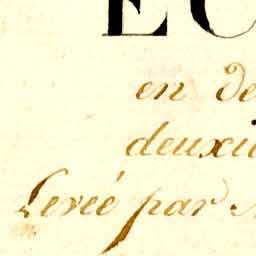 EC
en de
deuxi
Levée par